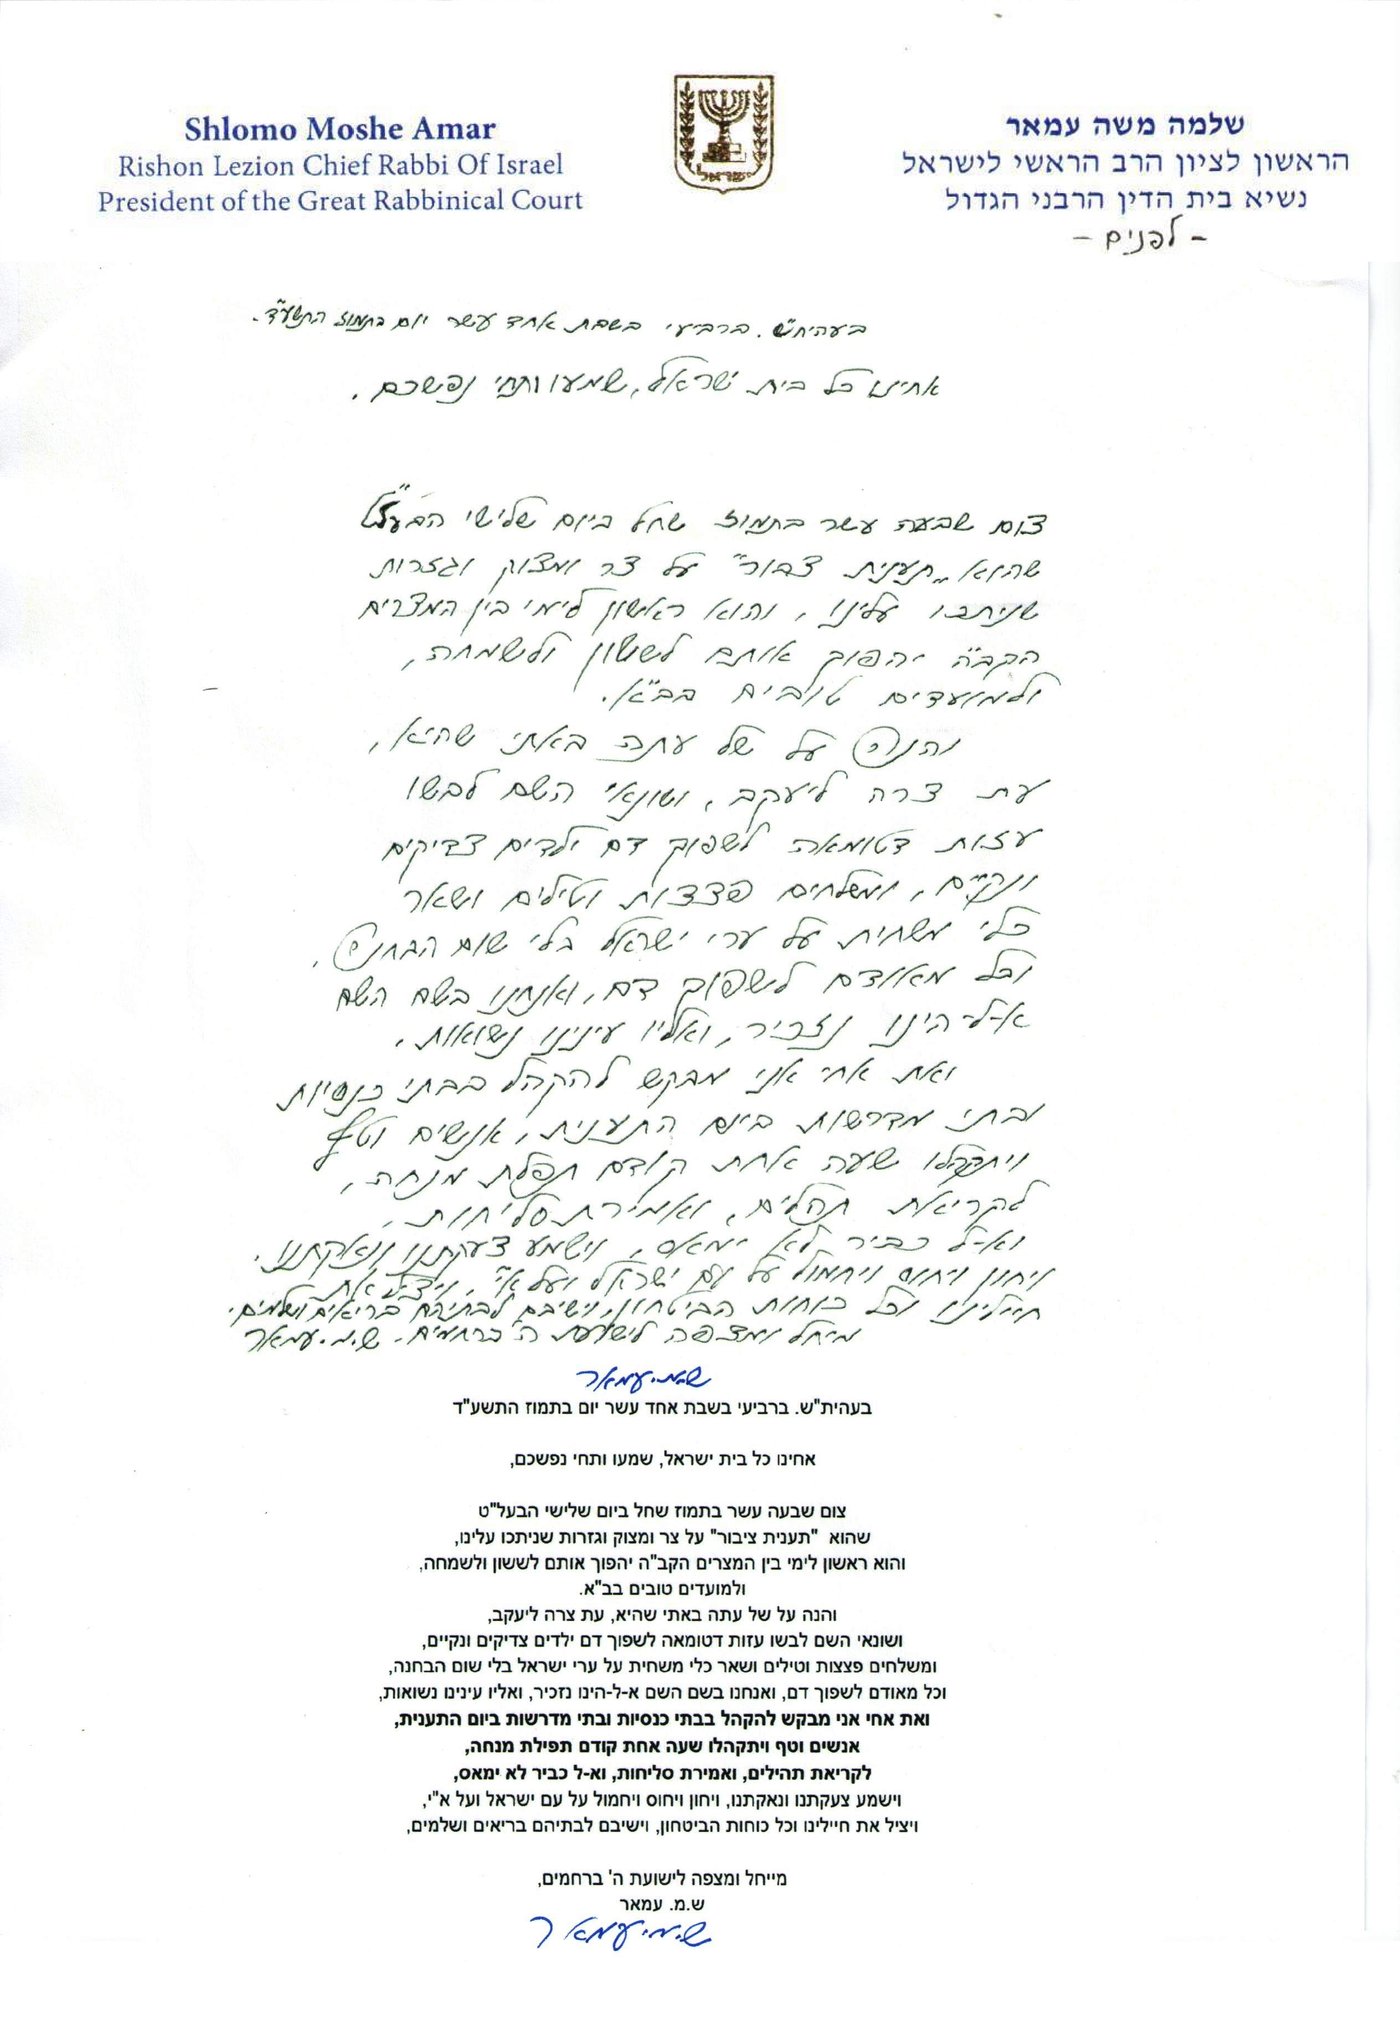 Shlomo Moshe Amar
Rishon Lezion Chief Rabbi Of Israel
President of the Great Rabbinical Court
ישראל
שלמה משה עמאר
הראשון לציון הרב הראשי לישראל
נשיא בית הדין הרבני הגדול
- לפנים -
בעהית"ש. ברביעי בשבת אחד עשר יום בתמוז התשע"ד.
אחינו כל בית ישראל, שמעו ותחי נפשכם,
צום שבעה עשר בתמוז שחל ביום שלישי הבעל"ט
שהוא "תענית צבור" על צר ומצוק וגזרות
שניתכו עלינו, והוא ראשון לימי בין המצרים
הקב"ה יהפוך אותם לששון ולשמחה,
ולמועדים טובים בב"א.
והנה על של עתה באתי שהיא,
עת צרה ליעקב, ושונאי השם לבשו
עזות דטומאה לשפוך דם ילדים צדיקים
ונקיים, ומשלחים פצצות וטילים ושאר
כלי משחית על ערי ישראל בלי שום הבחנה,
וכל מאודם לשפוך דם, ואנחנו בשם השם
א-ל-הינו נזכיר, ואליו עינינו נשואות,
ואת אחי אני מבקש להקהל בבתי כנסיות
ובתי מדרשות ביום התענית, אנשים וטף
ויתקהלו שעה אחת קודם תפלת מנחה,
לקריאת תהלים, ואמירת סליחות,
וא-ל כביר לא ימאס, וישמע צעקתנו ונאקתנו,
ויחון ויחוס ויחמול על עם ישראל ועל א"י, ויציל את
חיילינו וכל כוחות הביטחון, וישיבם לבתיהם בריאים ושלמים,
מייחל ומצפה לישועת ה' ברחמים, ש.מ. עמאר
ש.מ. עמאר
בעהית"ש. ברביעי בשבת אחד עשר יום בתמוז התשע"ד
אחינו כל בית ישראל, שמעו ותחי נפשכם,
צום שבעה עשר בתמוז שחל ביום שלישי הבעל"ט
שהוא "תענית ציבור" על צר ומצוק וגזרות שניתכו עלינו,
והוא ראשון לימי בין המצרים הקב"ה יהפוך אותם לששון ולשמחה,
ולמועדים טובים בב"א.
והנה על של עתה באתי שהיא, עת צרה ליעקב,
ושונאי השם לבשו עזות דטומאה לשפוך דם ילדים צדיקים ונקיים,
ומשלחים פצצות וטילים ושאר כלי משחית על ערי ישראל בלי שום הבחנה,
וכל מאודם לשפוך דם, ואנחנו בשם השם א-ל-הינו נזכיר, ואליו עינינו נשואות,
ואת אחי אני מבקש להקהל בבתי כנסיות ובתי מדרשות ביום התענית,
אנשים וטף ויתקהלו שעה אחת קודם תפילת מנחה,
לקריאת תהילים, ואמירת סליחות, וא-ל כביר לא ימאס,
וישמע צעקתנו ונאקתנו, ויחון ויחוס ויחמול על עם ישראל ועל א"י,
ויציל את חיילינו וכל כוחות הביטחון, וישיבם לבתיהם בריאים ושלמים,
מייחל ומצפה לישועת ה' ברחמים,
ש.מ. עמאר
ש.מ. עמאר